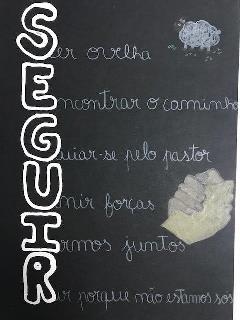 Ser ovelha
Encontrar o caminho
Guiar-se pelo pastor
Unir forças
Irmos juntos
Rir porque não estamos sós